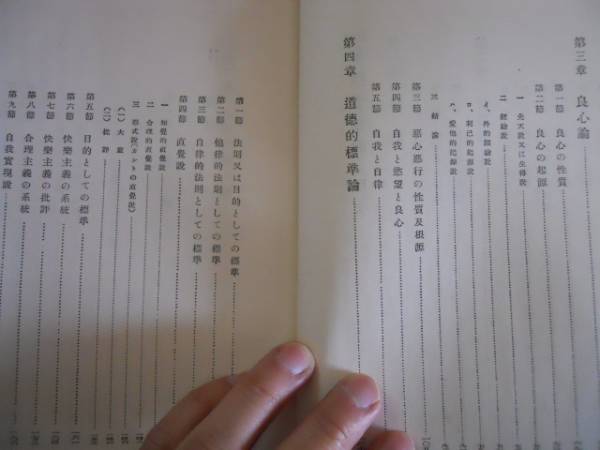 第三章 良心論
第一節 良心の性質
第二節 良心の起源
一 先天説又は生得説
二 經驗説
a、外的經驗説
b、利己的起源説
c、愛他的起源説
三 結論
第三節 惡心惡行の性質及根源
第四節 自我と慾望と良心
第五節 自我と自律
第四章 道德的標準論
第一節 法則又は目的としての標準
第二節 他律的法則としての標準
第三節 自律的法則としての標準
第四節 直覺説
一 知覺的直覺説
二 合理的直覺説
三 形式説(カントの直覺説)
(一) 大意
(二) 批評
第五節 目的としての標準
第六節 快樂主義の系統
第七節 快樂主義の批評
第八節 合理主義の系統
第九節 自我實現説